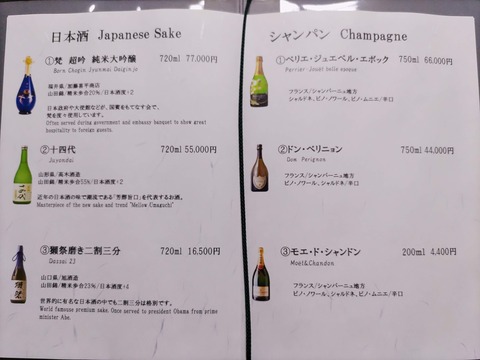 日本酒 Japanese Sake
①梵 超吟 純米大吟醸 720ml 77,000円
Born Chogin Jyunmai Daiginjo
福井県/加藤吉平商店
山田錦/精米歩合20%/日本酒度+2
日本政府や大使館などが、国賓をもてなす会で、
梵を度々使用しています。
Often served during government and embassy banquet to show great
hospitality to foreign guests.
②十四代 720ml 55,000円
Juyondai
山形県/高木酒造
山田錦/精米歩合55%/日本酒度+2
近年の日本酒の味で潮流である「芳醇旨口」を代表するお酒。
Masterpiece of the new sake and trend "Mellow Umaguchi"
③獺祭磨き二割三分 720ml 16,500円
Dassai 23
山口県/旭酒造
山田錦/精米歩合23%/日本酒度+4
世界的に有名な日本酒の中でも二割三分は格別です。
World famous premium sake. Once served to president Obama from prime
minister Abe.
シャンパン Champagne
①ペリエ・ジュエベル・エポック 750ml 66,000円
Perrier-Jouët belle epoque
フランス/シャンパーニュ地方
シャルドネ、ピノ・ノワール、ピノ・ムニエ/辛口
②ドン・ペリニョン 750ml 44,000円
Dom Perignon
フランス/シャンパーニュ地方
ピノ・ノワール、シャルドネ/辛口
③モエ・ド・シャンドン 200ml 4,400円
Moët&Chandon
フランス/シャンパーニュ地方
ピノ・ノワール、シャルドネ、ピノ・ムニエ/辛口